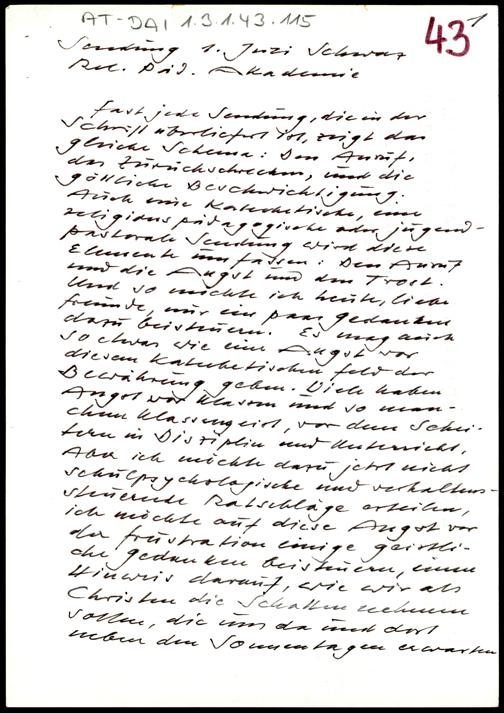 AT-DAI 1.3.1.43.115
43 1
Sendung 1. Juni Schwaz
Rel. Päd. Akademie
Fast jede Sendung, die in der
Schrift überliefert ist, zeigt das
gleiche Schema: Den Anruf,
das Zurückschrecken, und die
göttliche Beschwichtigung.
Auch eine Katechetische, eine
religionspädagogische oder jugend-
pastorale Sendung wird diese
Elemente umfassen: Den Anruf
und die Angst und den Trost.
Und so möchte ich heute, liebe
Freunde, nur ein paar Gedanken
dazu beisteuern. Es mag auch
so etwas wie eine Angst vor
diesem Katechetischen Feld der
Bewährung geben. Viele haben
Angst vor Klassen und so man-
chem Klassengeist, vor dem Schei-
tern in Disziplin und Unterricht.
Aber ich möchte dazu jetzt nicht
schulpsychologische und verhaltens-
steuernde Ratschläge erteilen,
ich möchte auf diese Angst vor
der Frustration einige geistli-
che Gedanken beisteuern, einen
Hinweis darauf, wie wir als
Christen die Schatten nehmen
sollen, die uns da und dort
neben den Sonnentagen erwarten